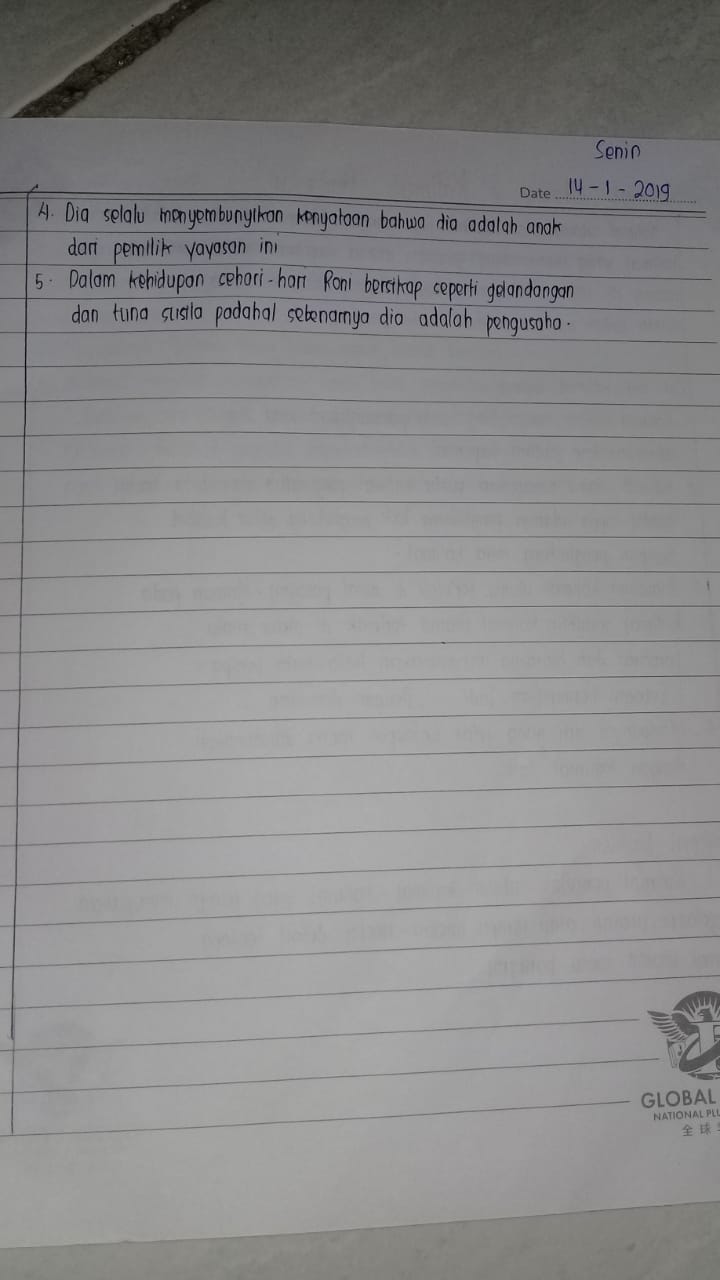 Senin
Date 14-1-2019
4. Dia selalu menyembunyikan kenyataan bahwa dia adalah anak
dari pemilik yayasan ini
5. Dalam kehidupan cehari-hari Roni bersikap ceperti gelandangan
dan tuna susila padahal sebenarnya dia adalah pengusaha.
GLOBAL
NATIONAL PLU
全球